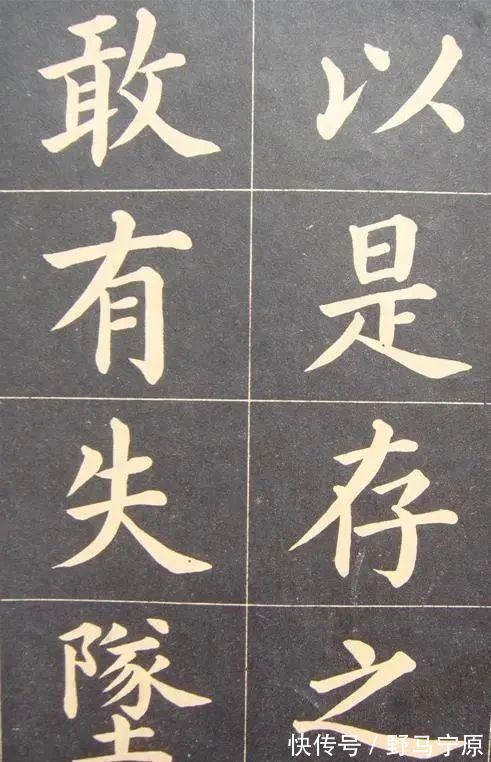 以是存之
敢有失墜
快传号/野马宁原